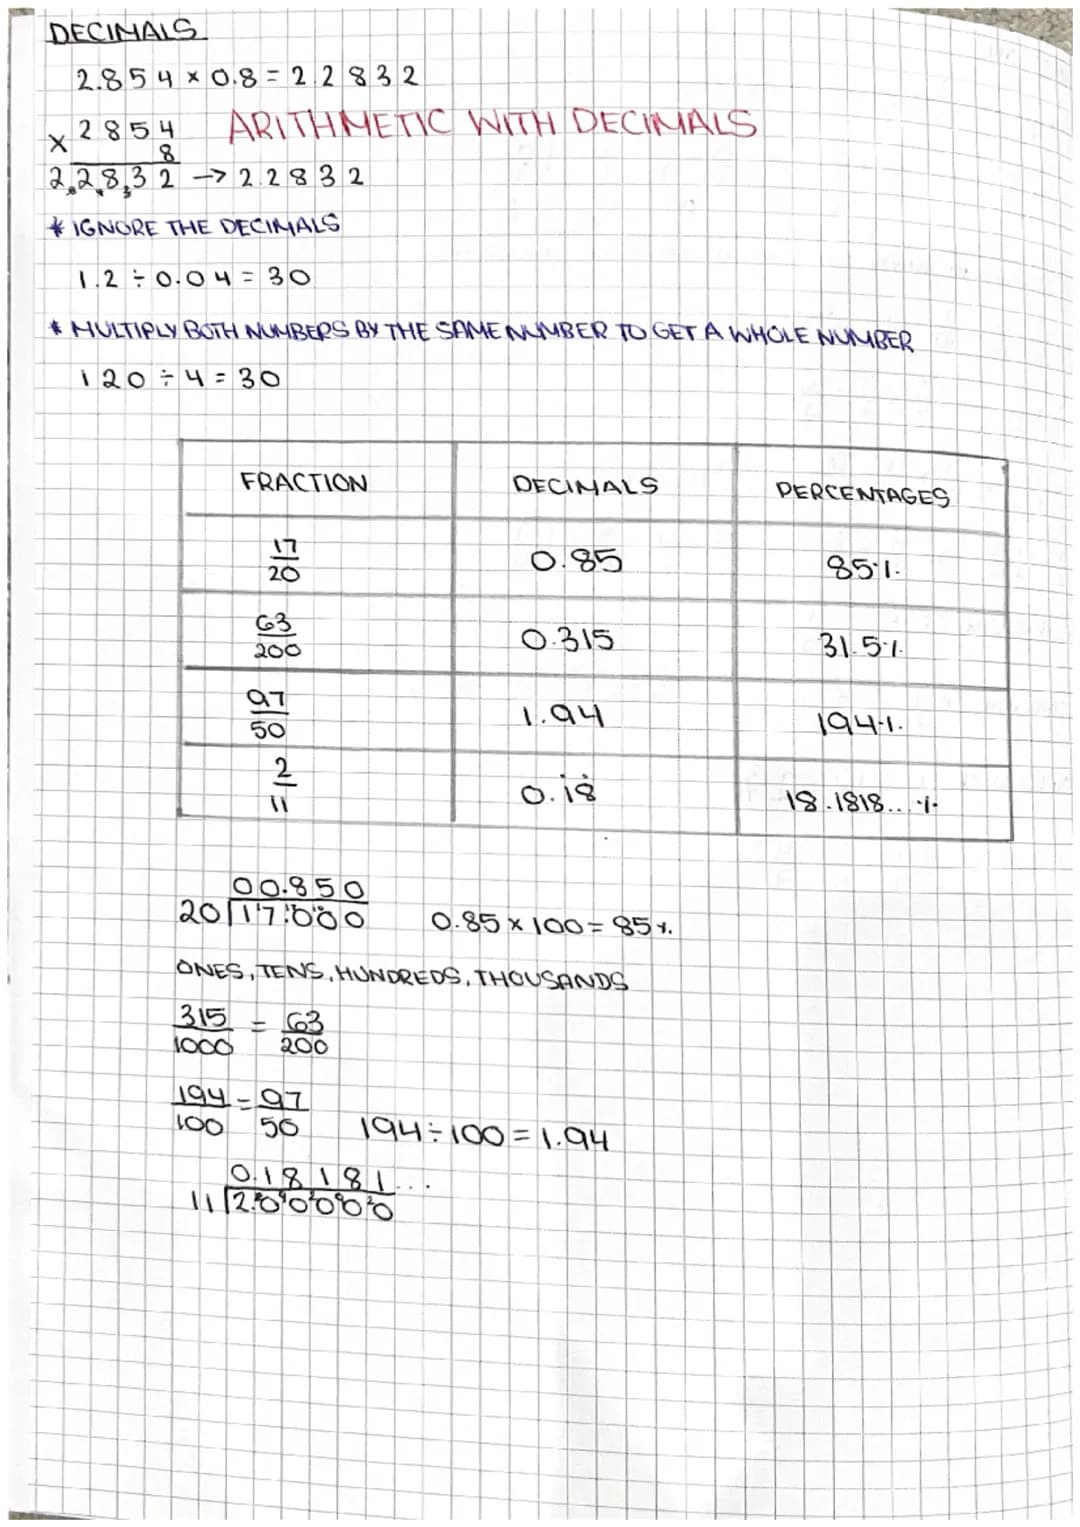 DECIMALS
2.854 × 0.8 = 2.2832
ARITHMETIC WITH DECIMALS
× 2854
8
22832 → 2.2832
* IGNORE THE DECIMALS
1.2 ÷ 0.04 = 30
* MULTIPLY BOTH NUMBERS BY THE SAME NUMBER TO GET A WHOLE NUMBER
120 ÷ 4 = 30
FRACTION DECIMALS PERCENTAGES
17/20 0.85 85%
63/200 0.315 31.5%
97/50 1.94 194%
2/11 0.1̇8̇ 18.1818.. %
00.850
20 17.000 0.85 × 100 = 85%
ONES, TENS, HUNDREDS, THOUSANDS
315/1000 = 63/200
194/100 = 97/50 194 ÷ 100 = 1.94
0.18181...
11 2.00000